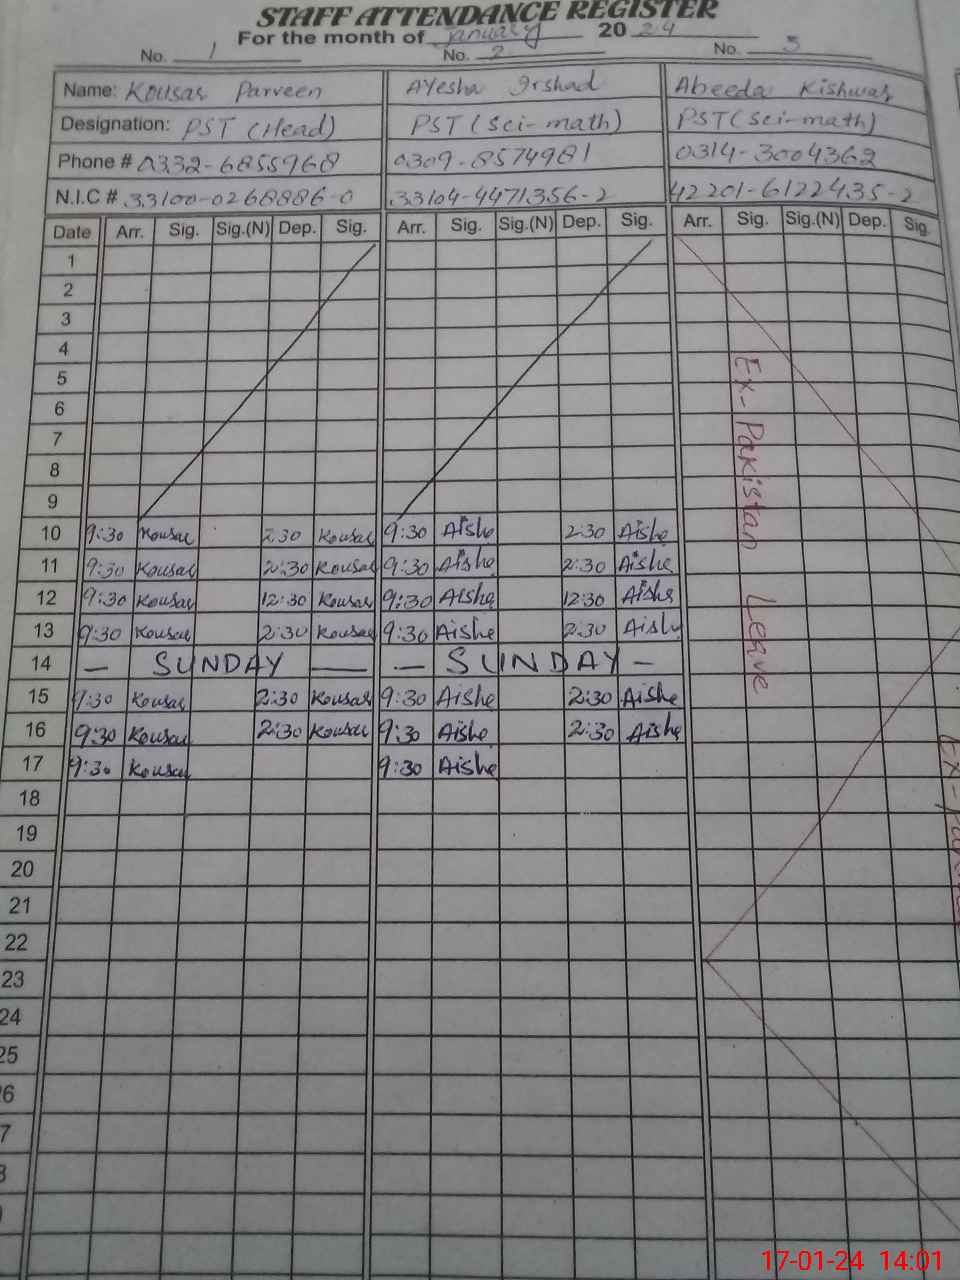 STAFF ATTENDANCE REGISTER
For the month of January 2024
No. 1 No. 2 No. 3
Name: Kousar Parveen Ayesha Irshad Abeeda Kishwar
Designation: PST (Head) PST (Sci-math) PST (Sci-math)
Phone # 0332-6855968 0309-8574981 0314-3004362
N.I.C # 33100-0268886-0 33104-4471356-2 42201-6122435-2
Date Arr. Sig. Sig.(N) Dep. Sig. Arr. Sig. Sig.(N) Dep. Sig. Arr. Sig. Sig.(N) Dep. Sig.
1
2
3
4
5
6
7
8
9
10 9:30 Kousar 2:30 Kousar 9:30 Aishe 2:30 Aishe
11 9:30 Kousar 2:30 Kousar 9:30 Aishe 2:30 Aishe
12 9:30 Kousar 12:30 Kousar 9:30 Aishe 12:30 Aishe
13 9:30 Kousar 2:30 Kousar 9:30 Aishe 2:30 Aishe
14 — SUNDAY — — SUNDAY —
15 9:30 Kousar 2:30 Kousar 9:30 Aishe 2:30 Aishe
16 9:30 Kousar 2:30 Kousar 9:30 Aishe 2:30 Aishe
17 9:30 Kousar 9:30 Aishe
18
19
20
21
22
23
24
25
Ex-Pakistan Leave
17-01-24 14:01